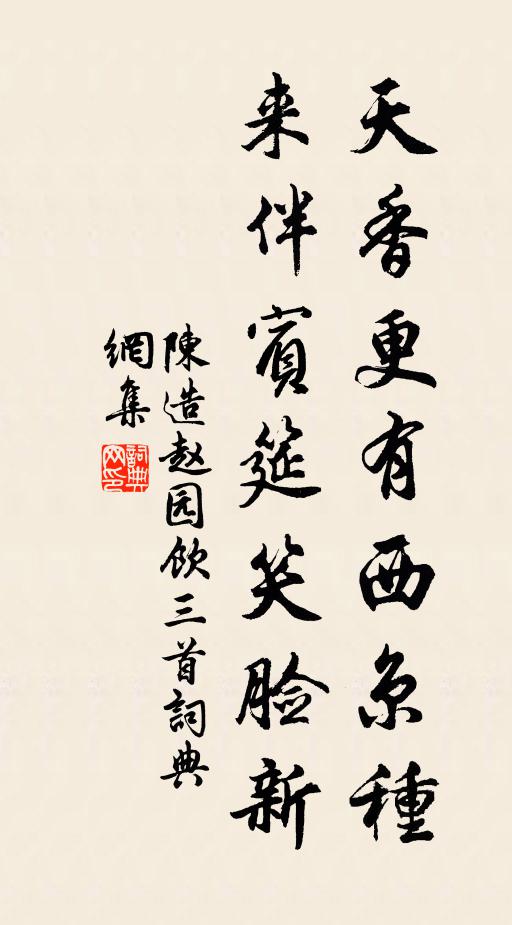 天香更有西京種
来伴賓筵笑脸新
陳造赵园飲三首詞典
網集
詞典
网印